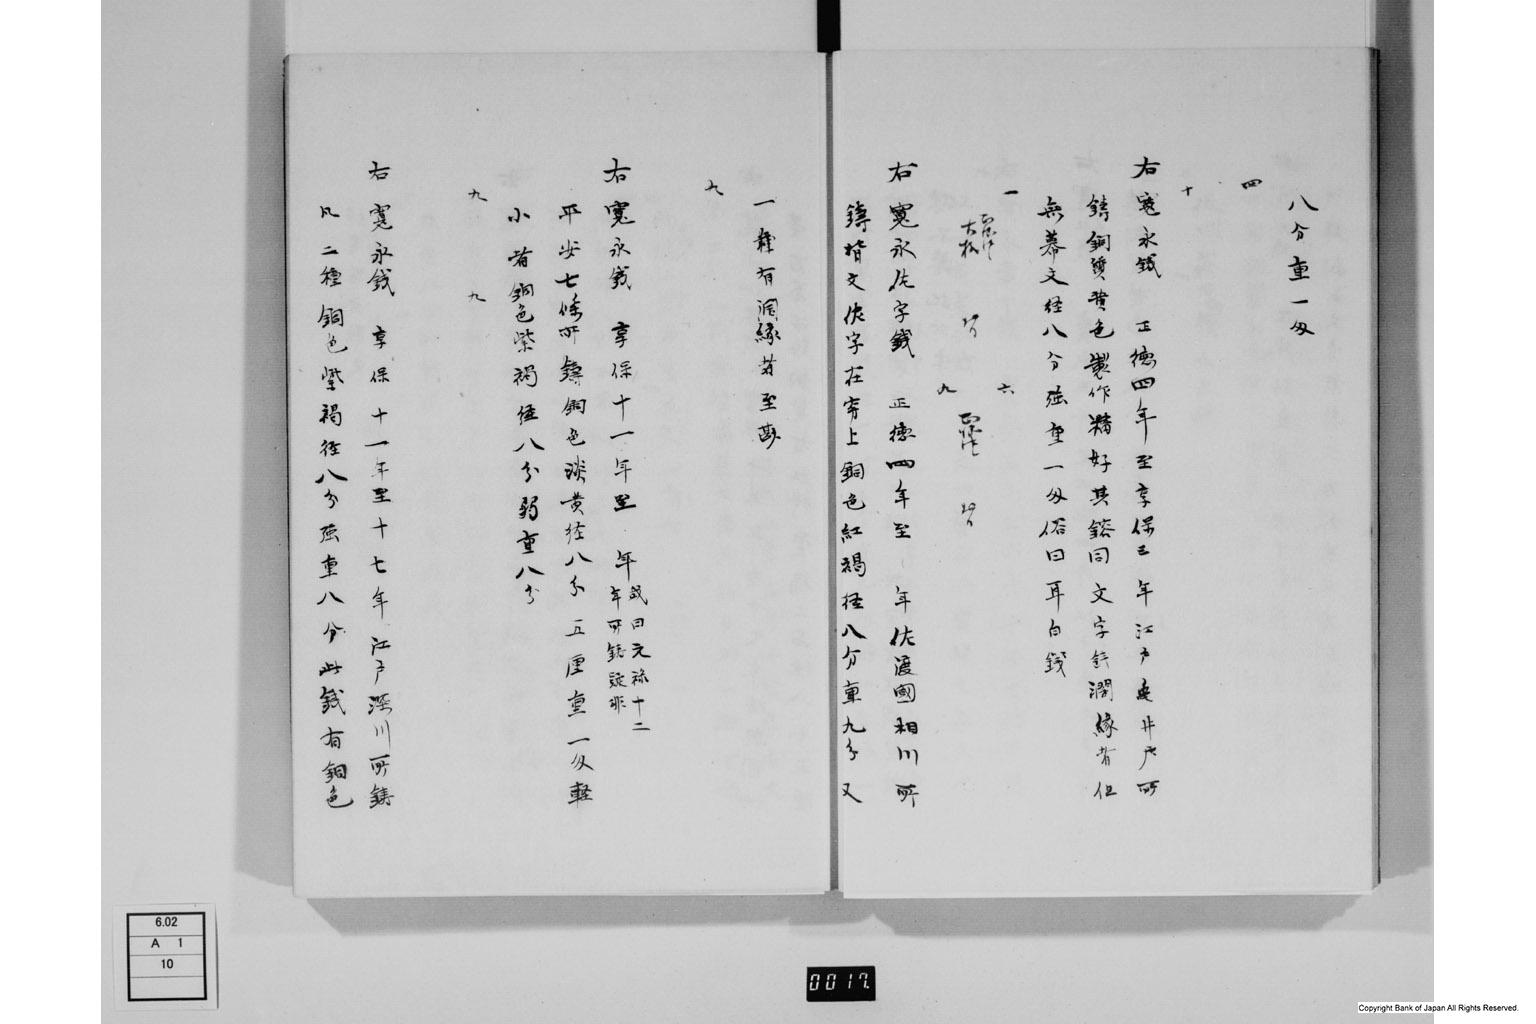 八分重一匁
四
十
右寛永銭 正徳四年至享保三年江戸亀井戸所
鋳銅質黄色製作精好其銘同文字銭濶縁者但
無幕文径八分強重一匁俗曰耳白銭
一
六
大
九
右寛永佐字銭 正徳四年至 年佐渡國相川所
鋳背文佐字在穿上銅色紅褐径八分重九分又
一種有濶縁者至尠
九
右寛永銭 享保十一年至 年或曰元禄十二
年所鋳疑非
平安七條所鋳銅色淡黄径八分五厘重一匁軽
小者銅色紫褐径八分弱重八分
九
九
右寛永銭 享保十一年至十七年江戸深川所鋳
凡二種銅色紫褐径八分強重八分此銭有銅色
6.02
A 1
10
0017.
Copyright Bank of Japan All Rights Reserved.